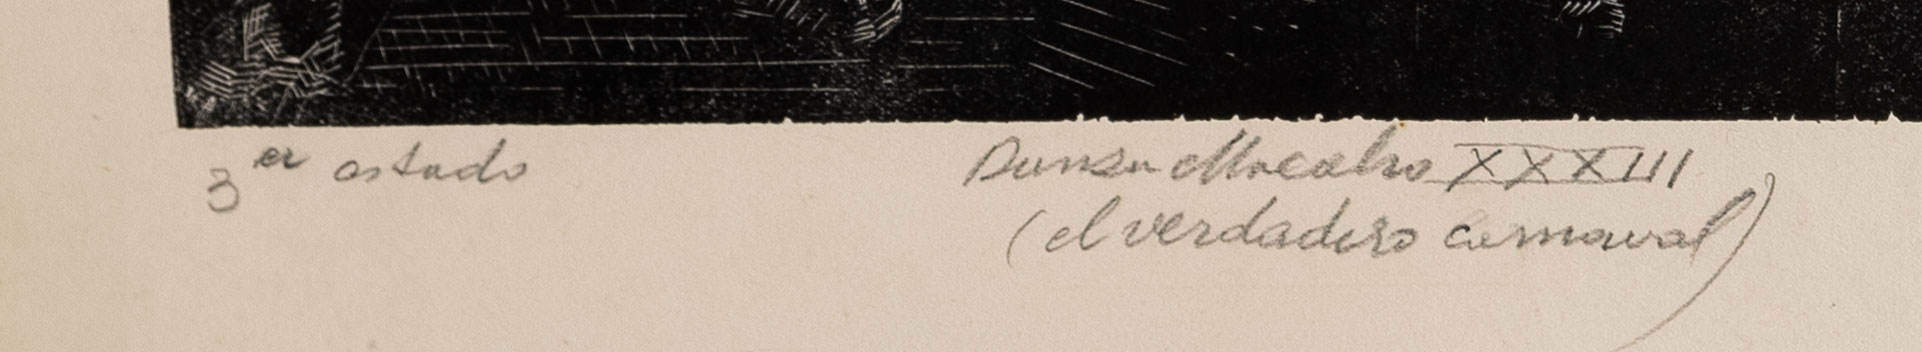 3er estado
Danza Macabra XXXIII
(el verdadero carnaval)